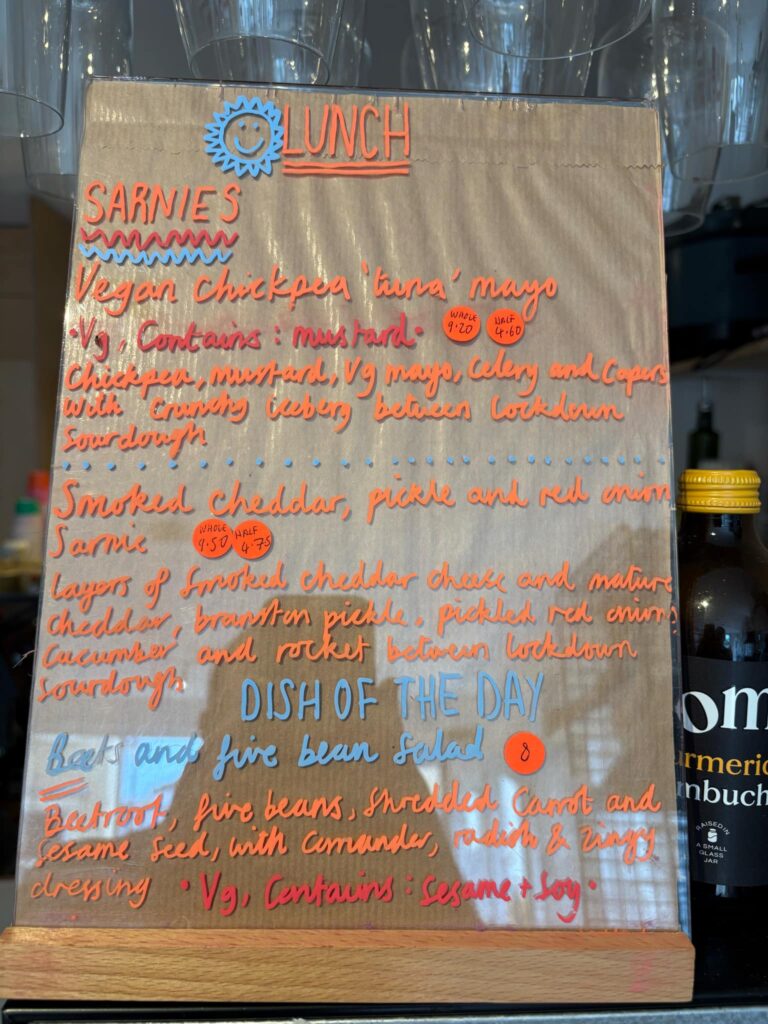 LUNCH
SARNIES
Vegan Chickpea 'tuna' mayo
• Vg, Contains: mustard •
WHOLE 9.20
HALF 4.60
Chickpea, mustard, Vg mayo, Celery and Capers
With Crunchy iceberg between Lockdown
Sourdough
Smoked Cheddar, pickle and red onion
Sarnie
WHOLE 9.50
HALF 4.75
Layers of Smoked cheddar cheese and mature
cheddar, branston pickle, pickled red onions
Cucumber and rocket between lockdown
Sourdough
DISH OF THE DAY
Beets and five bean Salad
8
Beetroot, five beans, Shredded Carrot and
Sesame Seed, with Corriander, radish & Zingy
dressing
• Vg, Contains: Sesame + Soy •
om
urmeric
mbuch
RAISED IN
A SMALL
GLASS
JAR